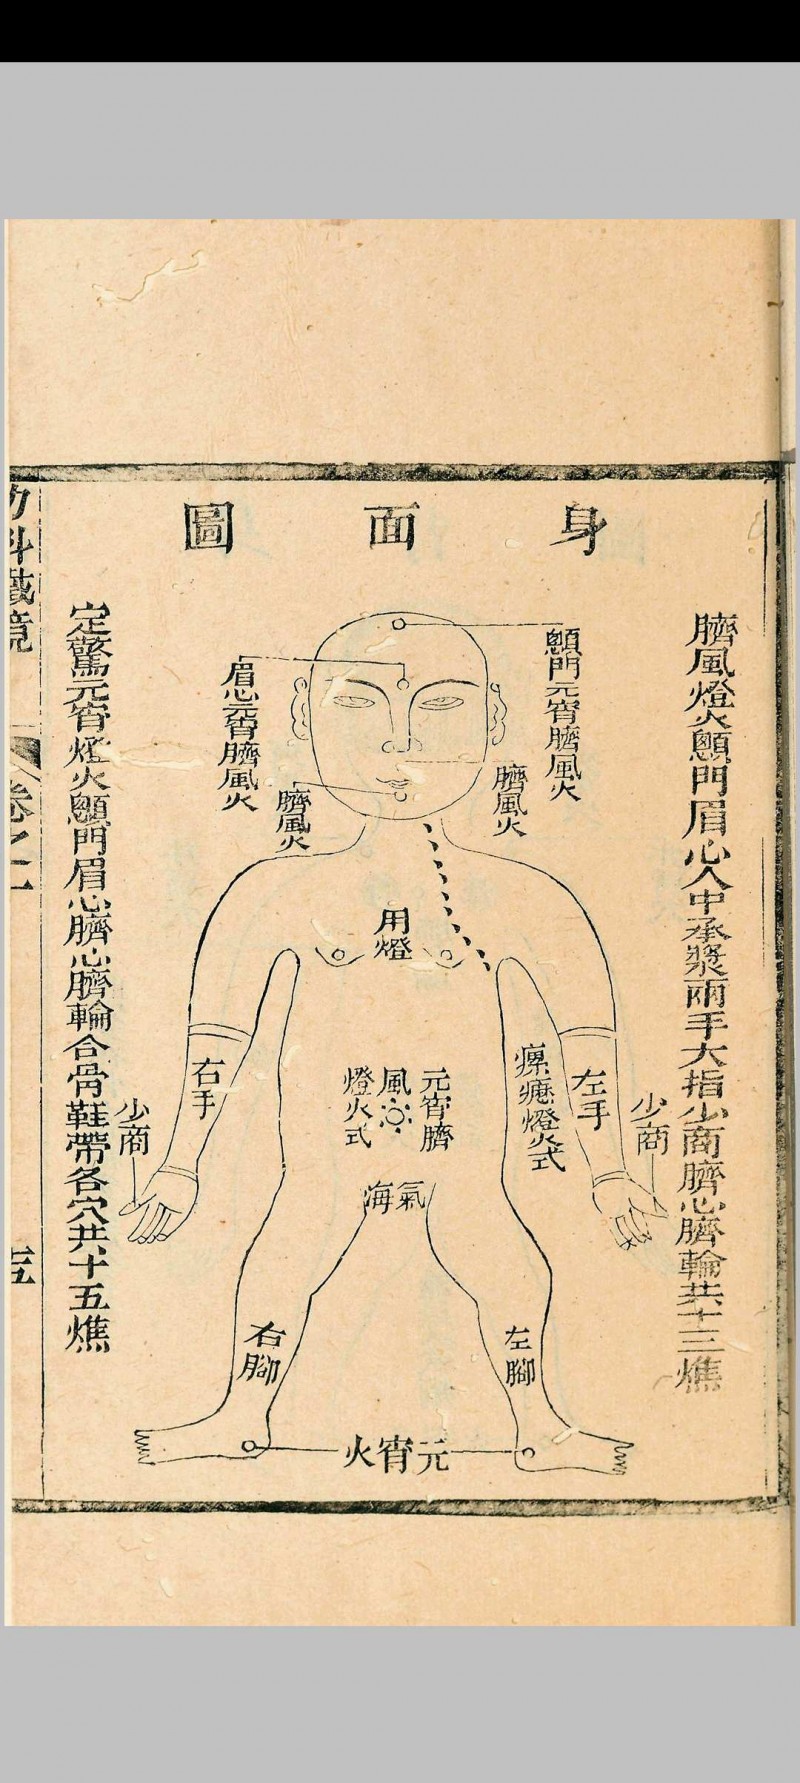 身面圖
臍風燈火顖門眉心人中承漿兩手大指少商臍心臍輪共十三燋
顖門元宵臍風火
眉心元宵臍風火
臍風火
臍風火
用燈
瘰癧燈火式
元宵臍
風
燈火式
氣海
左手
右手
少商
少商
左腳
右腳
元宵火
定驚元宵燈火顖門眉心臍心臍輪合骨鞋帶各穴共十五燋
幼科鐵鏡
卷之一